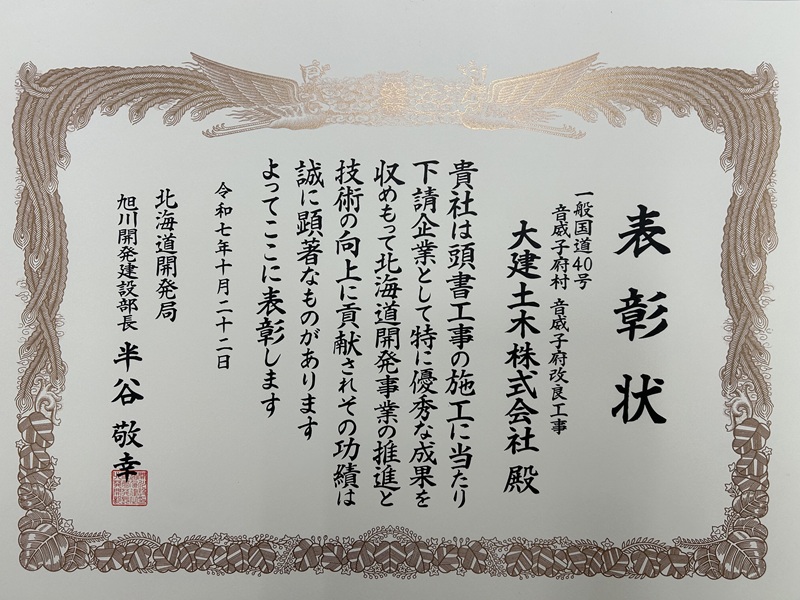 表彰状
一般国道40号
音威子府村 音威子府改良工事
大建土木株式会社 殿
貴社は頭書工事の施工に当たり
下請企業として特に優秀な成果を
収めもって北海道開発事業の推進と
技術の向上に貢献されその功績は
誠に顕著なものがあります
よってここに表彰します
令和七年十月二十二日
北海道開発局
旭川開発建設部長 半谷敬幸